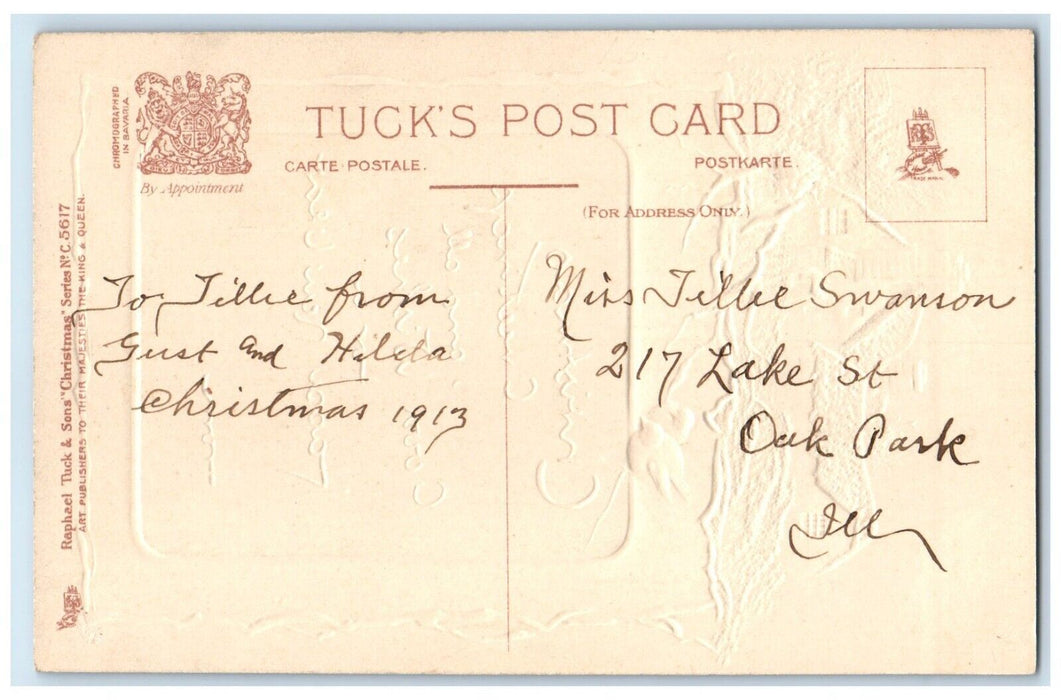 TUCK'S POST CARD
CARTE POSTALE.
POSTKARTE.
(FOR ADDRESS ONLY.)
CHROMOGRAPHED
IN BAVARIA.
By Appointment
TRADE MARK
Raphael Tuck & Sons' "Christmas" Series No. C. 5617
ART PUBLISHERS TO THEIR MAJESTIES THE KING & QUEEN.
To Tillie from
Gust and Hilda
Christmas 1913
Miss Tillie Swanson
217 Lake St
Oak Park
Ill